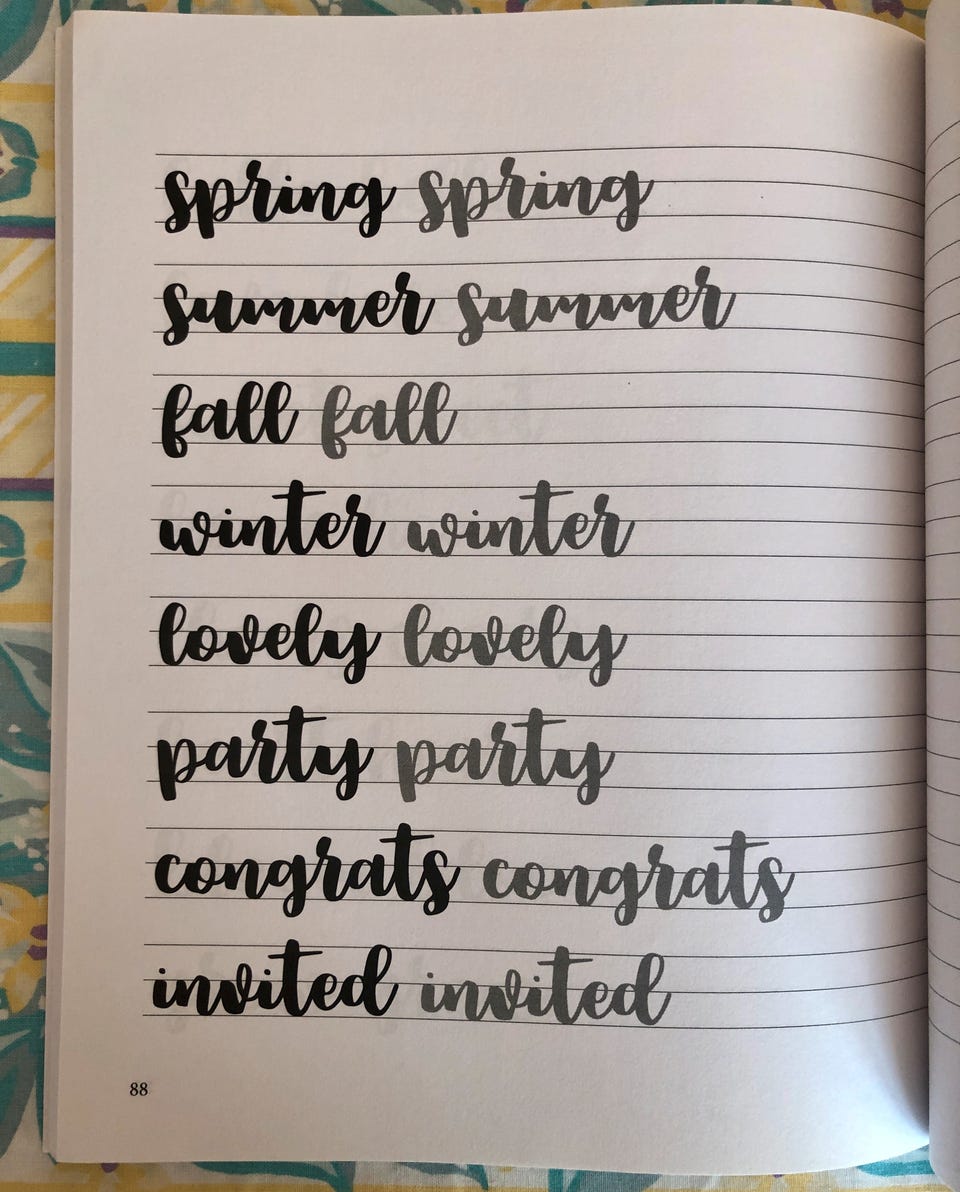 spring spring
summer summer
fall fall
winter winter
lovely lovely
party party
congrats congrats
invited invited
88